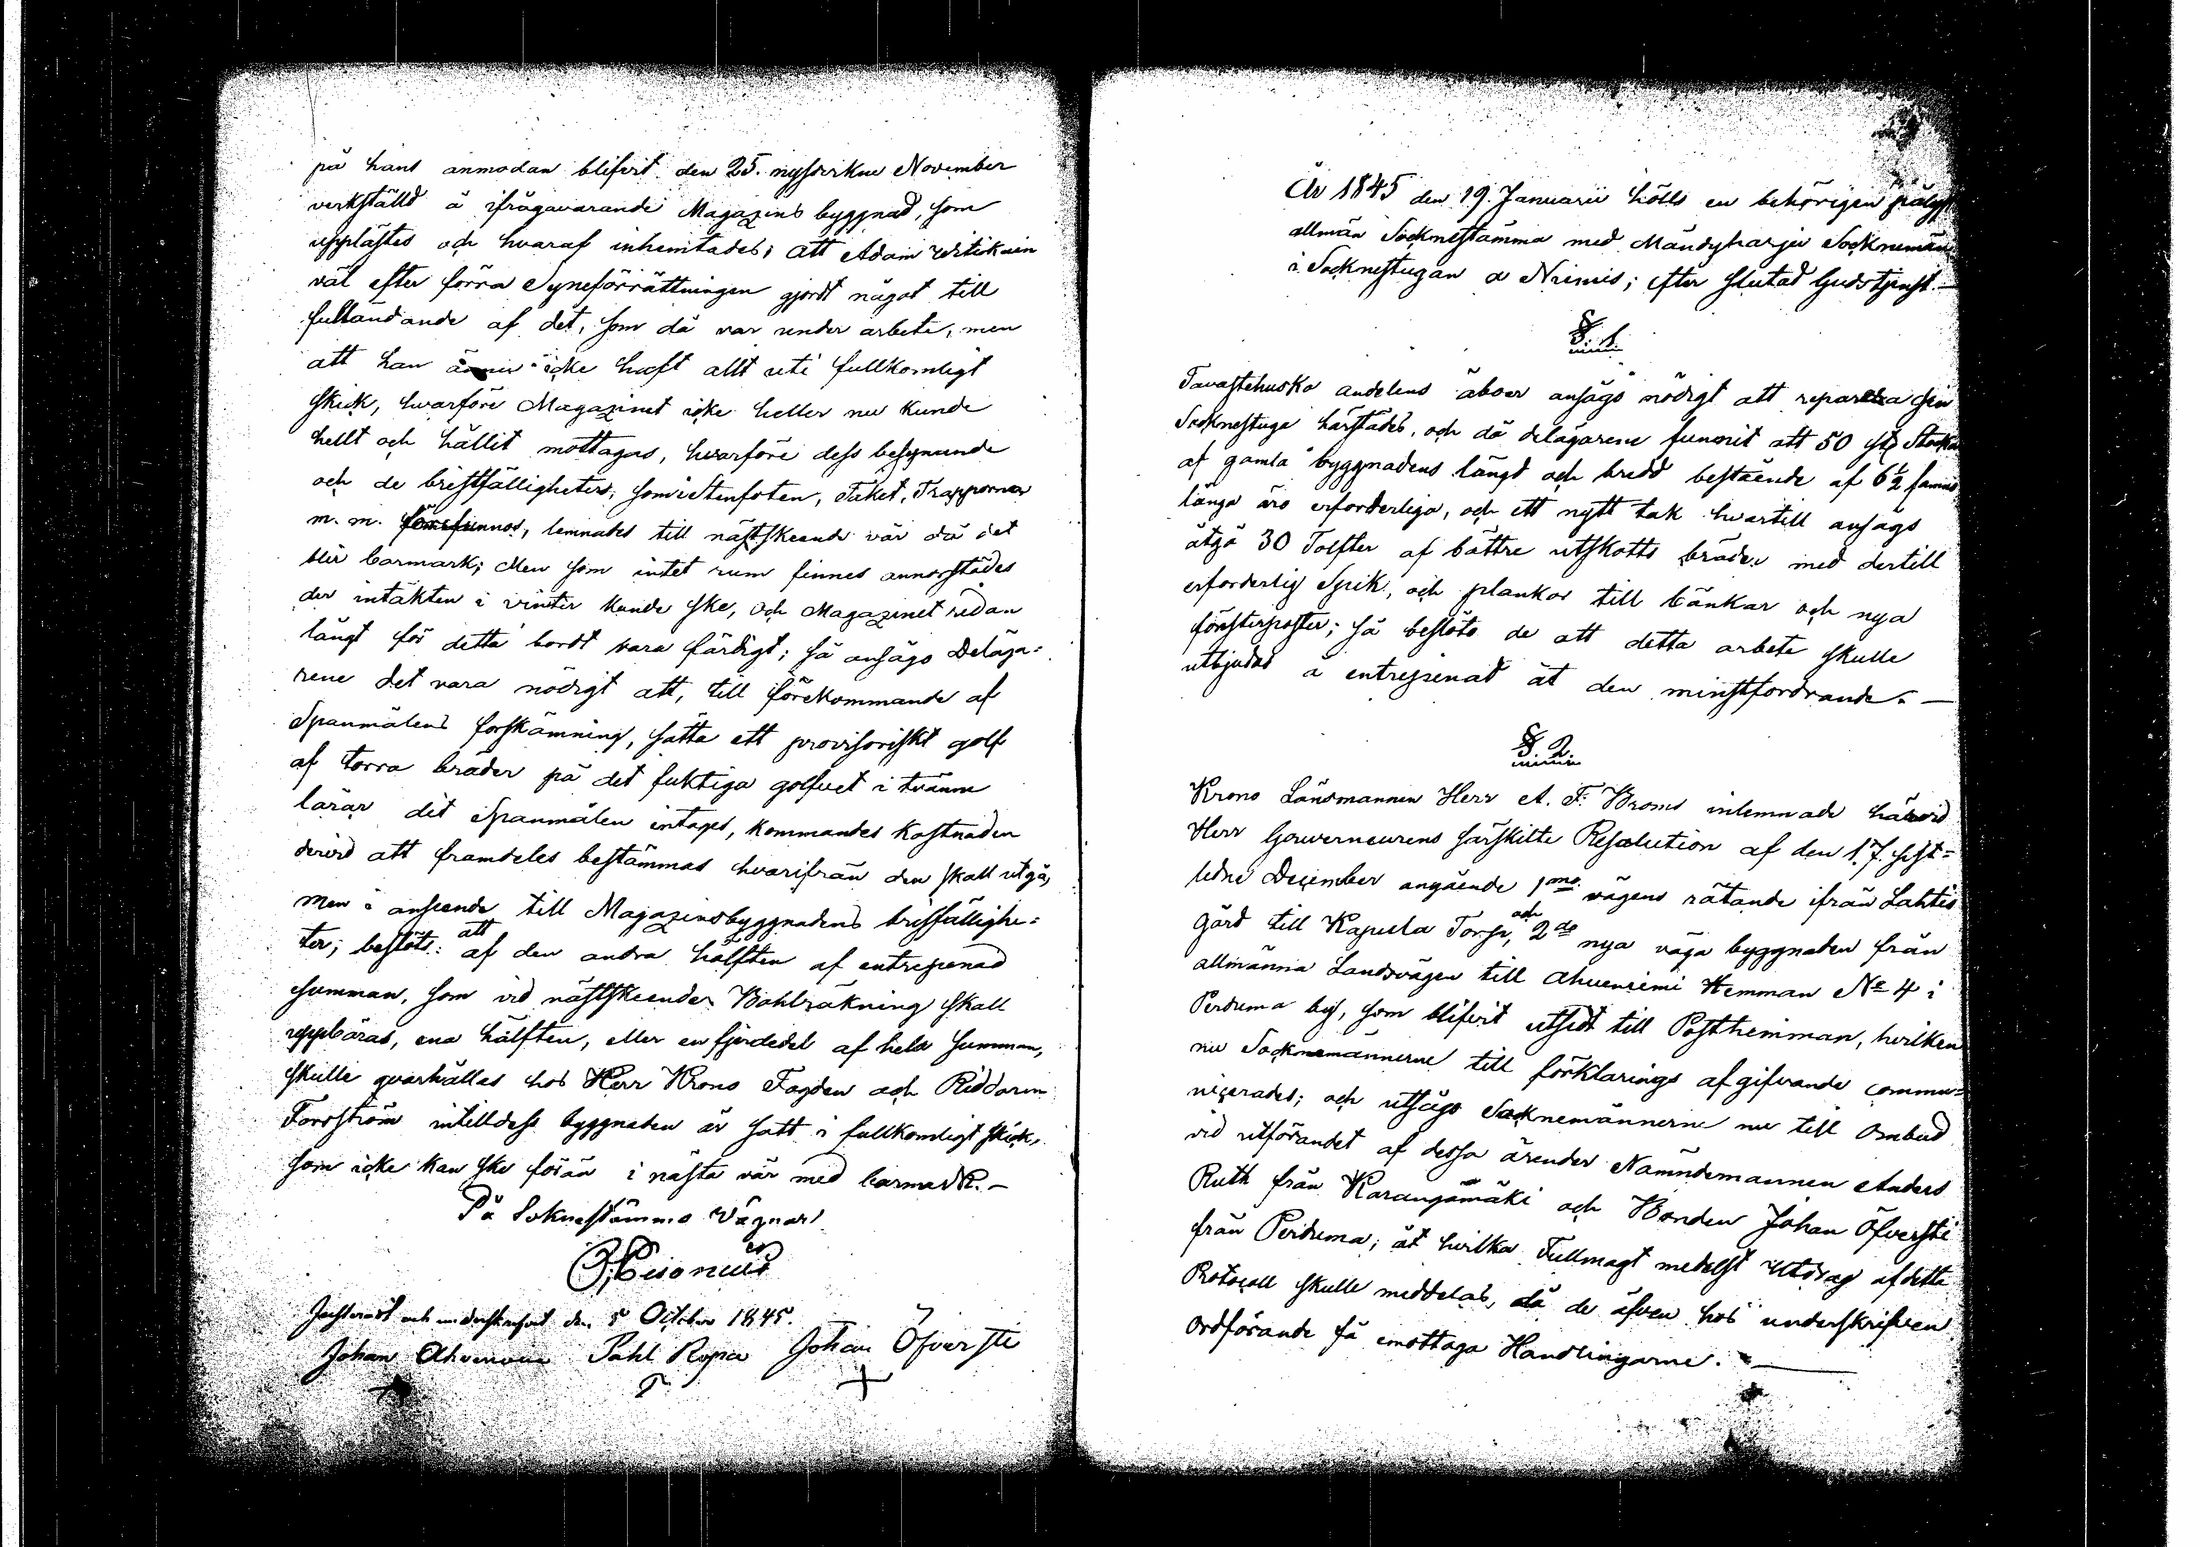 på hans anmodan blifvit den 25. nysvirkne November
verkställd å ifrågavarande Magazins byggnad, som
upplästes och hvaraf inhemtades; att Adam
väl efter förra Syneförrättningen gjordt något till
fulländande af det, som då var under arbete, men
att han ännu icke haft allt uti fullkomligt
skick, hvarföre Magazinet icke heller nu kunde
hellt och hållit mottagas, hvarföre dess besynande
och de bristfälligheter, som i Stenfoten, Taket, Trapporna
m. m. förefunnos, lemnades till nästskeende vår då det
blir barmark; Men som intet rum finnes annorstädes
der intäkten i vinter kunde ske, och Magazinet redan
långt för detta bordt vara färdigt; så ansågo Deläga=
rene det vara nödigt att, till förekommande af
Spanmålens forskämning, sätta ett provisoriskt golf
af torra bräder på det fuktiga golfvet i tvänne
lårar dit Spanmålen intages, kommandes kostnaden
dervid att framdeles bestämmas hvarifrån den skall utgå,
men i anseende till Magazinsbyggnadens bristfällighe=
ter; beslöts: att af den andra hälften af entrepenad
summan, som vid nästskeende Bohlräkning skall
uppbäras, ena hälften, eller en fjerdedel af hela summan,
skulle qvarhållas hos Herr Krono Fogden och Riddaren
Forsström intilldess byggnaden är satt i fullkomligt skick,
som icke kan ske förän i nästa vår med barmark. —
På Soknestämmo Vägnar!
Justeradt och underskrifvit den 5 October 1845.
Johan Ahvenainen Påhl Ropa Johan Öfverste
År 1845 den 19. Januarii hölls en behörigen pålyst
allmän Socknestämma med Mändyharju Socknemän
i Socknestugan à Niemis; efter slutad Gudstjenst. —
§. 1.
Tavastehusko andelens åboer ansågo nödigt att reparera sin
Socknestuga härstädes, och då delägarene funnit att 50 st Stockar
af gamla byggnadens längd och bredd bestående af 6½ famns
långa äro erforderliga, och ett nytt tak hvartill ansågs
åtgå 30 Tolfter af bättre utskotts bräder med dertill
erforderlig Spik, och plankor till bänkar och nya
fönsterposter; så beslöto de att detta arbete skulle
utbjudas à entrepenad åt den minstfordrande. —
§. 2.
Krono Länsmannen Herr A. F. Broms inlemnade härvid
Herr Gouverneurens särskilte Resolution af den 17. sist=
ledne December angående 1mo vägens rätande ifrån Lahtis
gård till Kapula Torp, och 2do nya väga byggnaden från
allmänna Landsvägen till Ahvenniemi Hemman No 4 i
Pertuma by, som blifvit utsedt till Posthemman, hvilken
nu Socknemännerne till förklarings afgifvande commu=
nicerades; och utsågo Socknemännerne nu till Ombud
vid utförandet af dessa ärender Nämndemannen Anders
Ruth från Karangamäki och Bonden Johan Öfversti
från Pertuma; åt hvilka Fullmagt medelst Utdrag af detta
Protocoll skulle meddelas, då de äfven hos underskrifven
Ordförande få emottaga Handlingarne. —